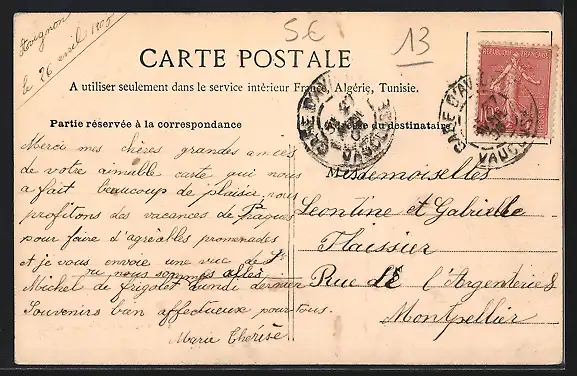 Avignon
le 26 avril 1905
S.E
13
CARTE POSTALE
A utiliser seulement dans le service intérieur France, Algérie, Tunisie.
Partie réservée à la correspondance
Adresse du destinataire
RÉPUBLIQUE FRANÇAISE
10
GARE D'AV
VAUCLUSE
GARE D'AV
VAUCLUSE
Merci mes chères grandes amies
de votre aimable carte qui nous
a fait beaucoup de plaisir, nous
profitons des vacances de Paques
pour faire d'agréables promenades
et je vous envoie une vue de St
ou nous sommes allés
Michel de frigolet lundi dernier
Souvenirs bien affectueux pour tous.
Marie Thérèse
Mesdemoiselles
Leontine et Gabrielle
Flaissier
Rue de l'Argenterie 8
Montpellier